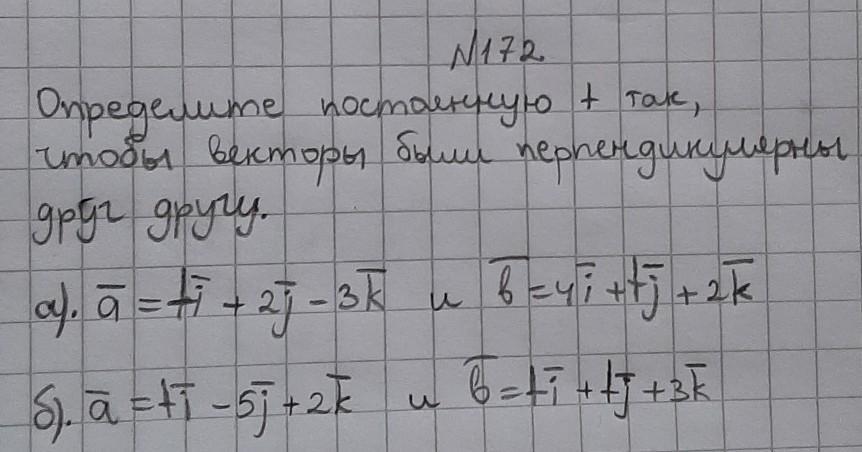 N172.
Определите постоянную t так,
чтобы векторы были перпендикулярны
друг другу.
а). a̅ = ti̅ + 2j̅ - 3k̅ и b̅ = 4i̅ + tj̅ + 2k̅
б). a̅ = ti̅ - 5j̅ + 2k̅ и b̅ = ti̅ + tj̅ + 3k̅